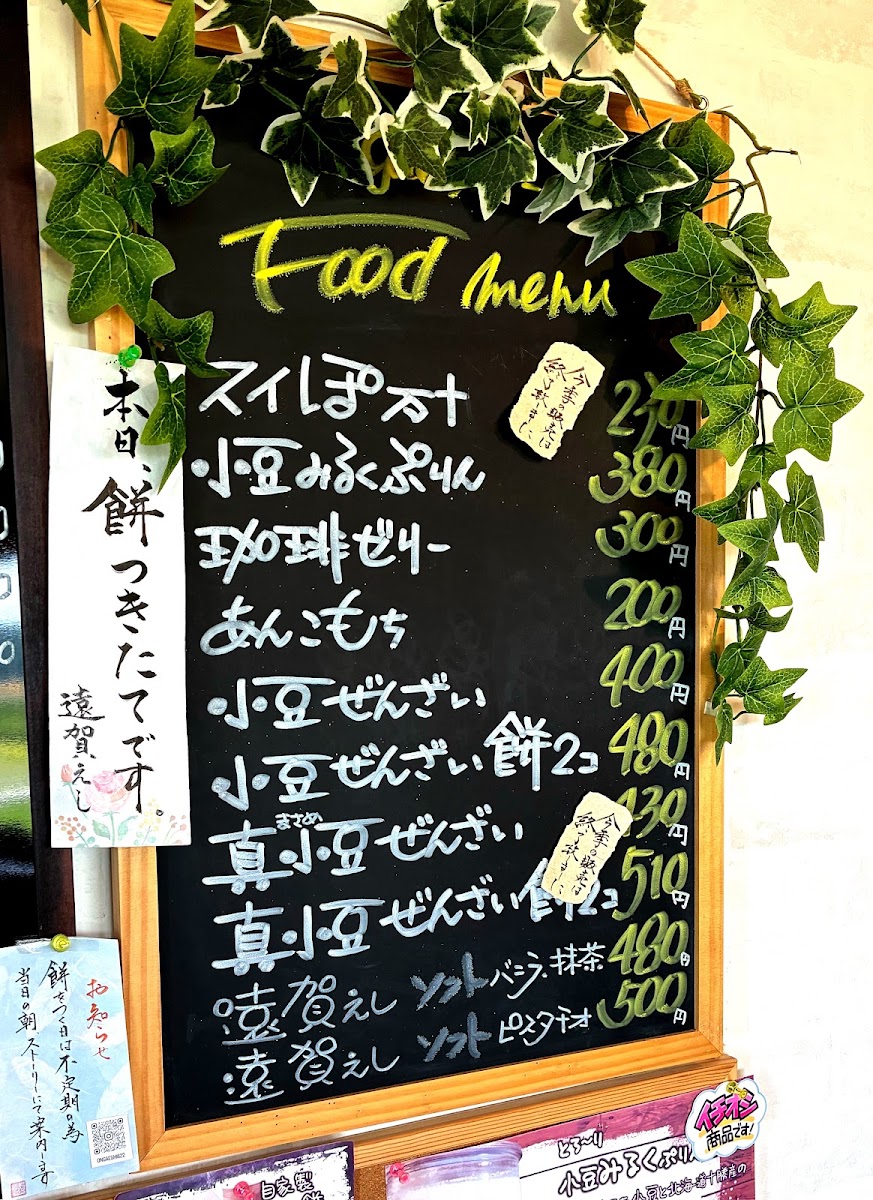 Food menu
スイぽてト 230円
今季の販売は
終了しました
・小豆みるくぷりん 380円
珈琲ゼリー 300円
あんこもち 200円
・小豆ぜんざい 400円
・小豆ぜんざい 餅2コ 480円
まさめ
真小豆ぜんざい 430円
真小豆ぜんざい 餅2コ 510円
今季の販売は
終了しました
遠賀えし ソフト バニラ、抹茶 480円
遠賀えし ソフト ピスタチオ 500円
本日、餅つきたてです。
遠賀えし
お知らせ
餅をつく日は不定期の為
当日の朝、ストーリーにて案内します
イチオシ
商品です!
とろ〜り
小豆みるくぷり
小豆と北海道十勝産の
自家製